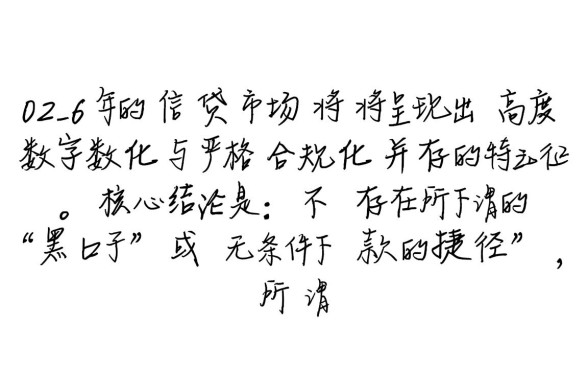 02_6年的信贷市场将将呈现出高度
数字数化与严格合规化并存的特征
。核心结论是：不存在所下谓的
“黑口子”或无条件下款的捷径”，
所谓